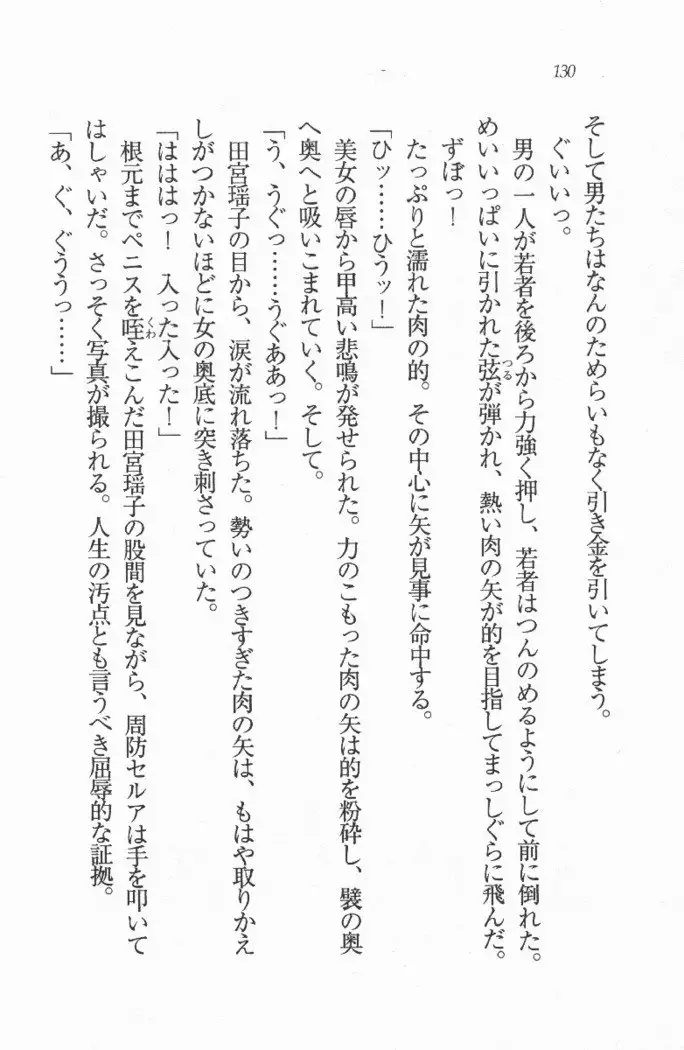 130
そして男たちはなんのためらいもなく引き金を引いてしまう。
ぐいいっ。
男の一人が若者を後ろから力強く押し、若者はつんのめるようにして前に倒れた。
めいいっぱいに引かれた弦つるが弾かれ、熱い肉の矢が的を目指してまっしぐらに飛んだ。
ずぼっ！
たっぷりと濡れた肉の的。その中心に矢が見事に命中する。
「ひッ……ひうッ！」
美女の唇から甲高い悲鳴が発せられた。力のこもった肉の矢は的を粉砕し、襞の奥
へ奥へと吸いこまれていく。そして。
「う、うぐっ……うぐああっ！」
田宮瑶子の目から、涙が流れ落ちた。勢いのつきすぎた肉の矢は、もはや取りかえ
しがつかないほどに女の奥底に突き刺さっていた。
「はははっ！　入った入った！」
根元までペニスを咥くわえこんだ田宮瑶子の股間を見ながら、周防セルアは手を叩いて
はしゃいだ。さっそく写真が撮られる。人生の汚点とも言うべき屈辱的な証拠。
「あ、ぐ、ぐううっ……」